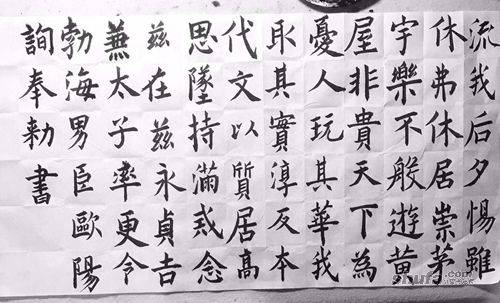 流我后夕惕雖
休弗休居崇茅
宇樂不般遊黄
屋非貴天下為
憂人玩其華我
取其實淳反本
代文以質居高
思墜持滿戒念
茲在茲永貞吉
兼太子率更令
勃海男臣歐陽
詢奉勅書